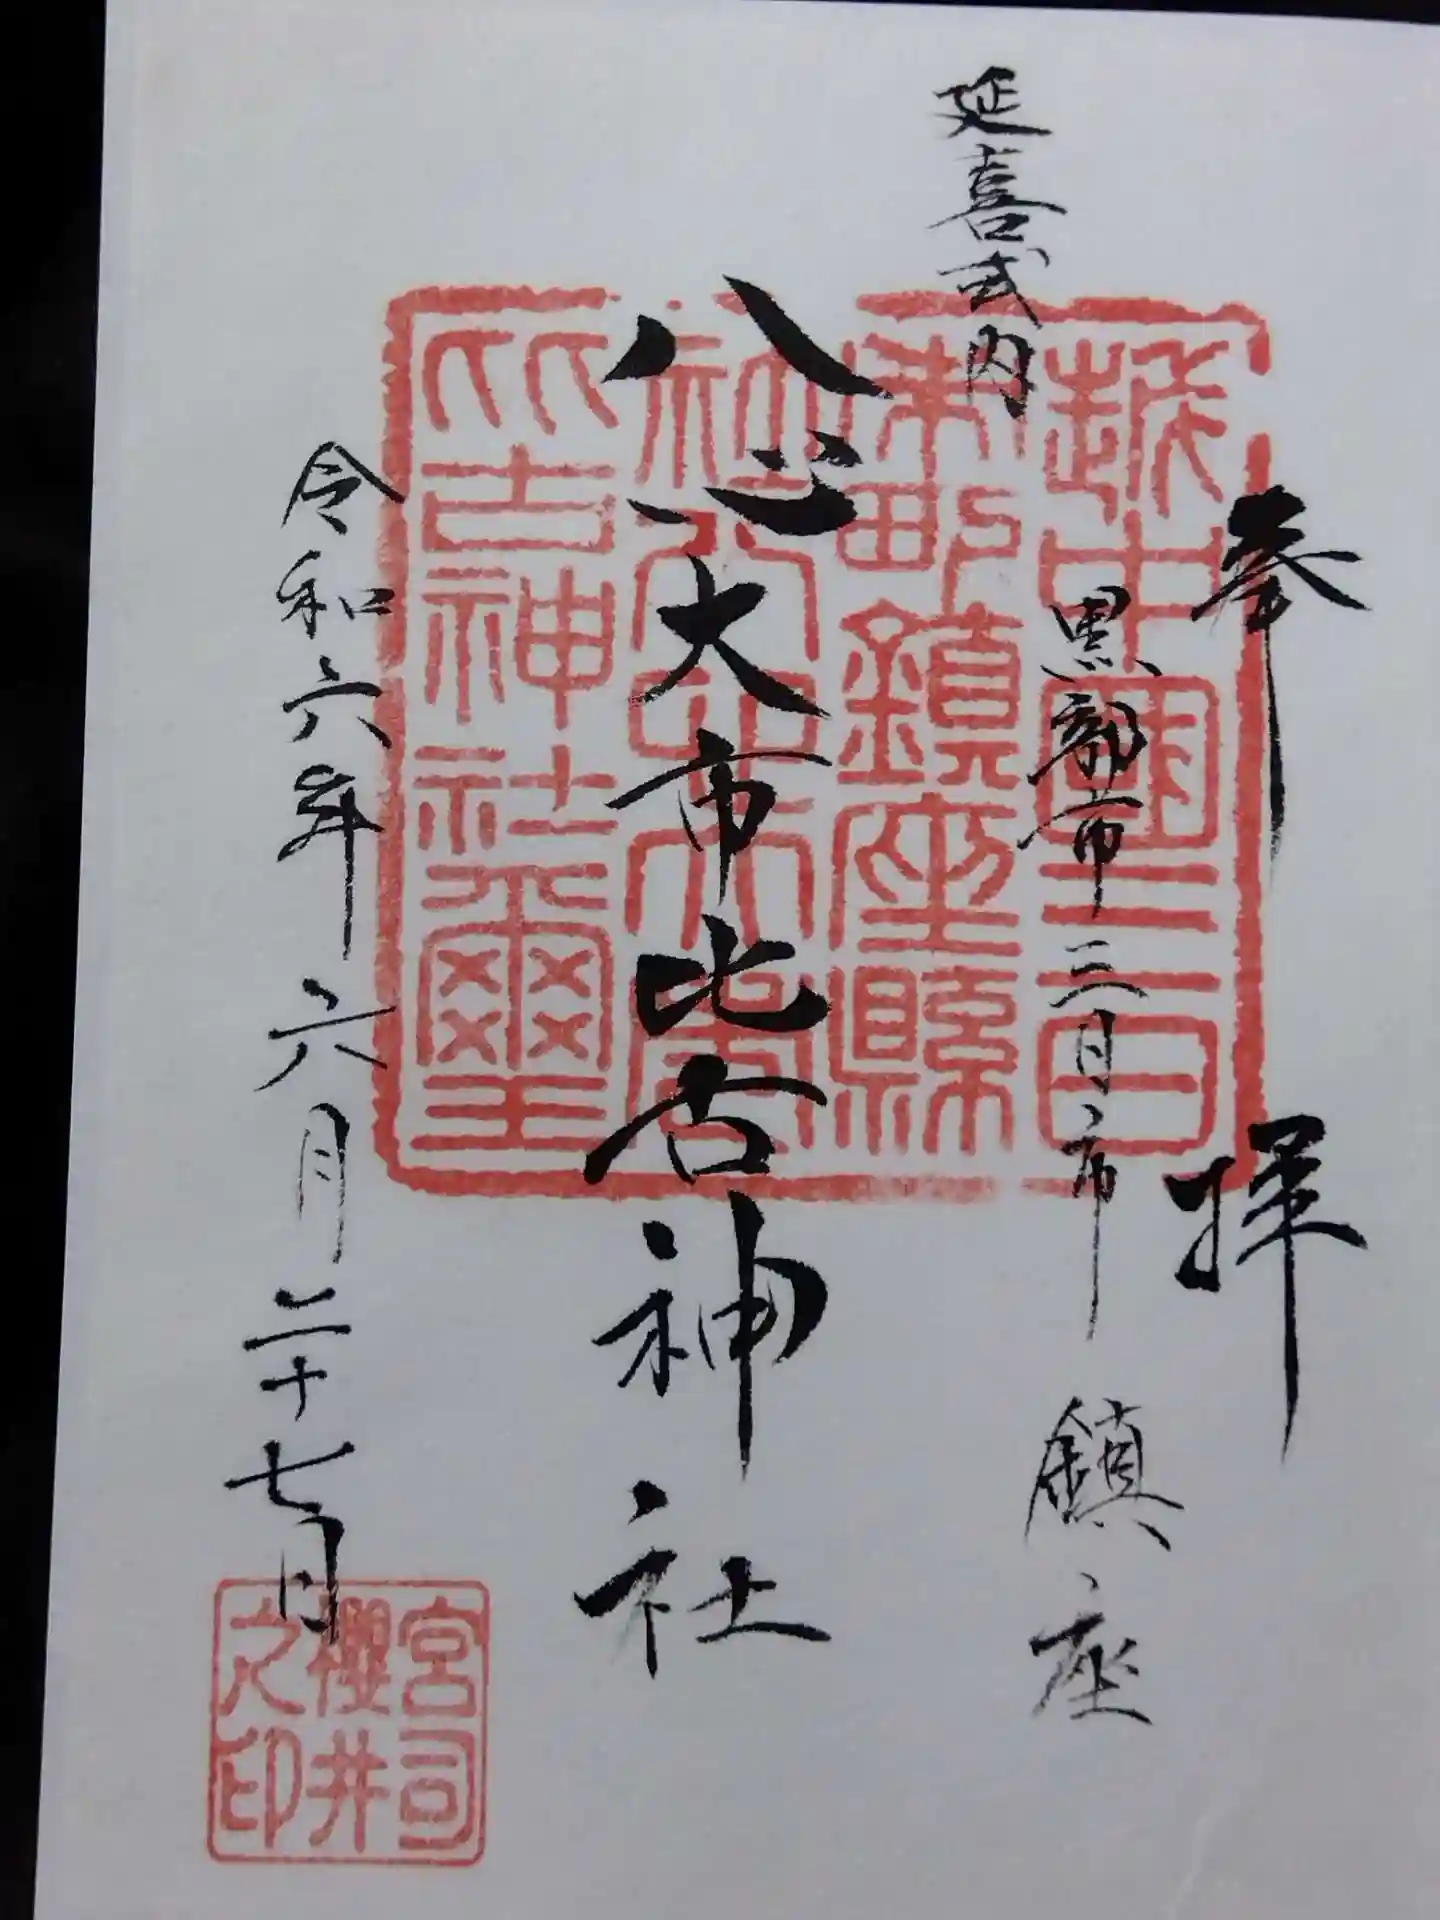 参拝
延喜式内
黒部市三日市鎮座
八心大市比古神社
令和六年六月二十七日
越中國三日
市町鎮座縣
社八心大市
比古神社璽
宮司
櫻井
之印